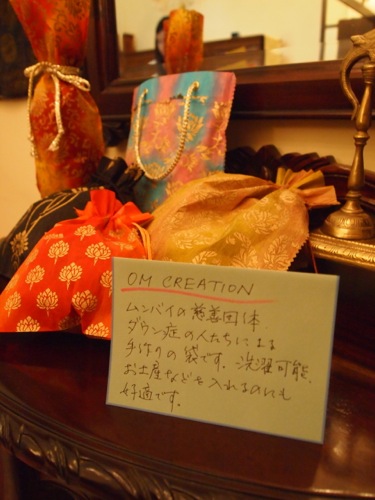 OM CREATION
ムンバイの慈善団体
ダウン症の人たちによる
手作りの袋です。洗濯可能、
お土産などを入れるのにも
好適です。